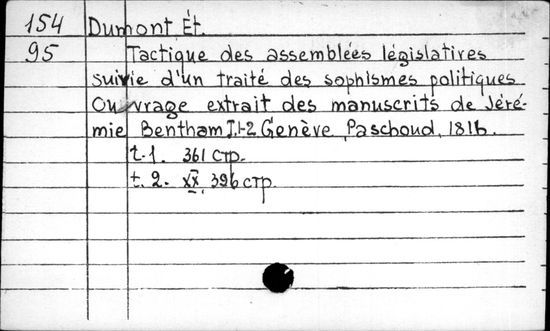 154 Dumont Ét.
95 Tactique des assemblées législatives
suivie d'un traité des sophismes politiques
Ouvrage extrait des manuscrits de Jéré-
mie Bentham T.1-2 Genève, Paschoud, 1816.
t.1. 361 стр.
t.2. XX, 396 стр.